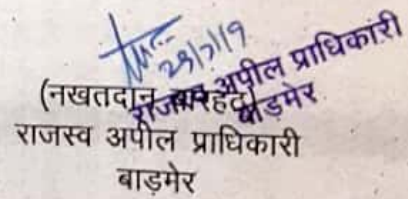 29/7/19
राजस्व अपील प्राधिकारी
बाड़मेर
(नखतदान बारहठ)
राजस्व अपील प्राधिकारी
बाड़मेर